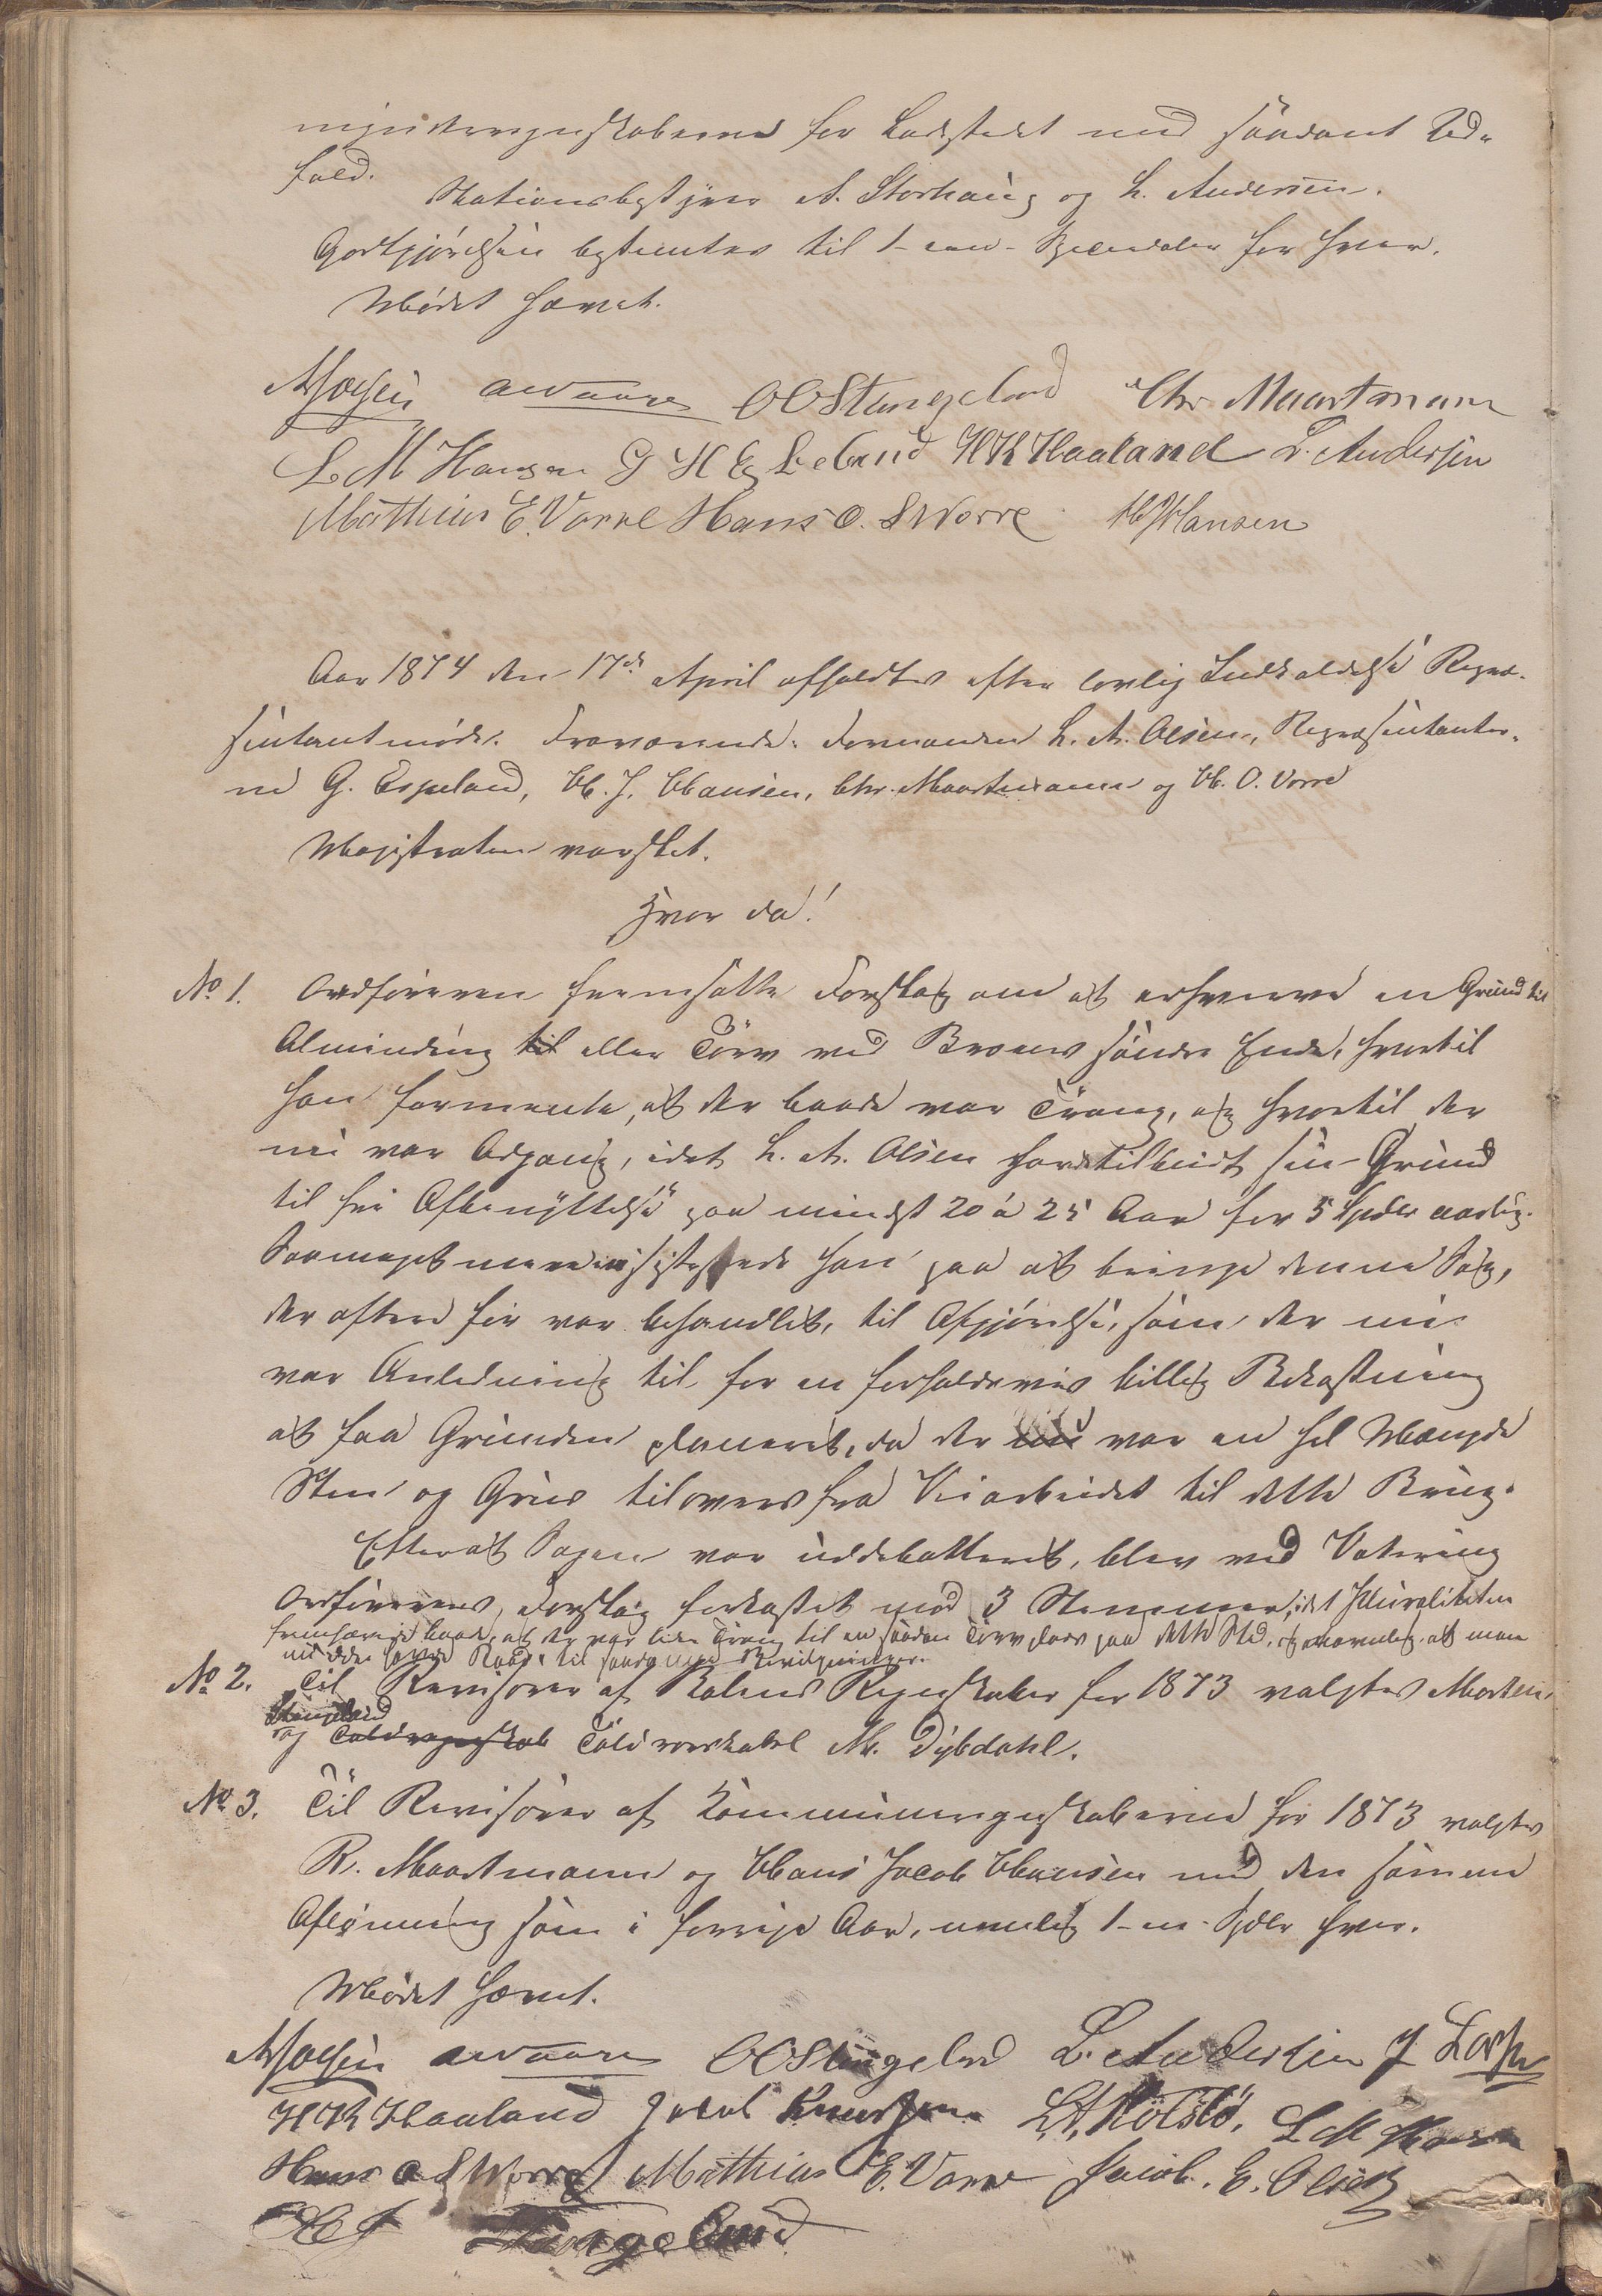 for Ladestedet med saadant Ud-
fald.
Stationsbestyrer A. Storhaug og L. Andersen.
Godtgjørelsen bestemtes til 1 - een - Speciedaler for hver.
Mødet hævet.
OO Stangeland Chr Maartmann
L M Hansen G H Eskeland HK Haaland L. Andersen
Mathias E. Vorre Hans O. S Worre H J Hansen
Aar 1874 den 17de April afholdtes efter lovlig Indkaldelse Repræ-
sentantmøde. Fraværende: Formanden L. A. Olsen, Repræsentanter-
ne G. Espeland, H. J. Hansen, Chr. Maartmann og H. O. Vorre
Magistraten varslet.
Hvor da!
No 1. Ordføreren fremsatte Forslag om at erhverve en Grund til
Alminding til eller Torv ved Broens søndre Ende, hvortil
han formente, at der baade var Trang, og hvortil der
nu var Adgang, idet L. A. Olsen havde tilbudt sin Grund
til fri Afbenyttelse paa mindst 20 à 25 Aar for 5 Spdlr aarlig.
han paa at bringe denne Sag,
der oftere før var behandlet, til Afgjørelse, som der nu
var Anledning til for en forholdsvis billig Bekostning
at faa Grunden planeret, da der nu var en hel Mængde
Sten og Grus tilovers fra Veiarbeidet til dette Brug.
Efterat Sagen var uddebatteret, blev ved Votering
Ordførerens Forslag forkastet mod 3 Stemmer, idet Pluraliteten
fremhævede baade, at der var liden Trang til en saadan Torvplads paa dette Sted, og navnlig at man
nu ikke havde Raad til saadanne Bevilgninger.
No 2. Til Revisorer af Skolens Regnskaber for 1873 valgtes Morten
Stangeland
og Toldregnskab Toldroerskarl M. Dybdahl.
No 3. Til Revisorer af Kommuneregnskaberne for 1873 valgtes
R. Maartmann og Hans Jacob Hansen med den samme
Aflønning som i forrige Aar, nemlig 1 - en - Spdlr hver.
Mødet hævet.
OO Stangeland L. Andersen J Larsen
HK Haaland Jakob Knudsen L. A. Holstø. L M Hansen
Hans O S Worre Mathias E. Vorre Jacob. E. Olsen
Stangeland